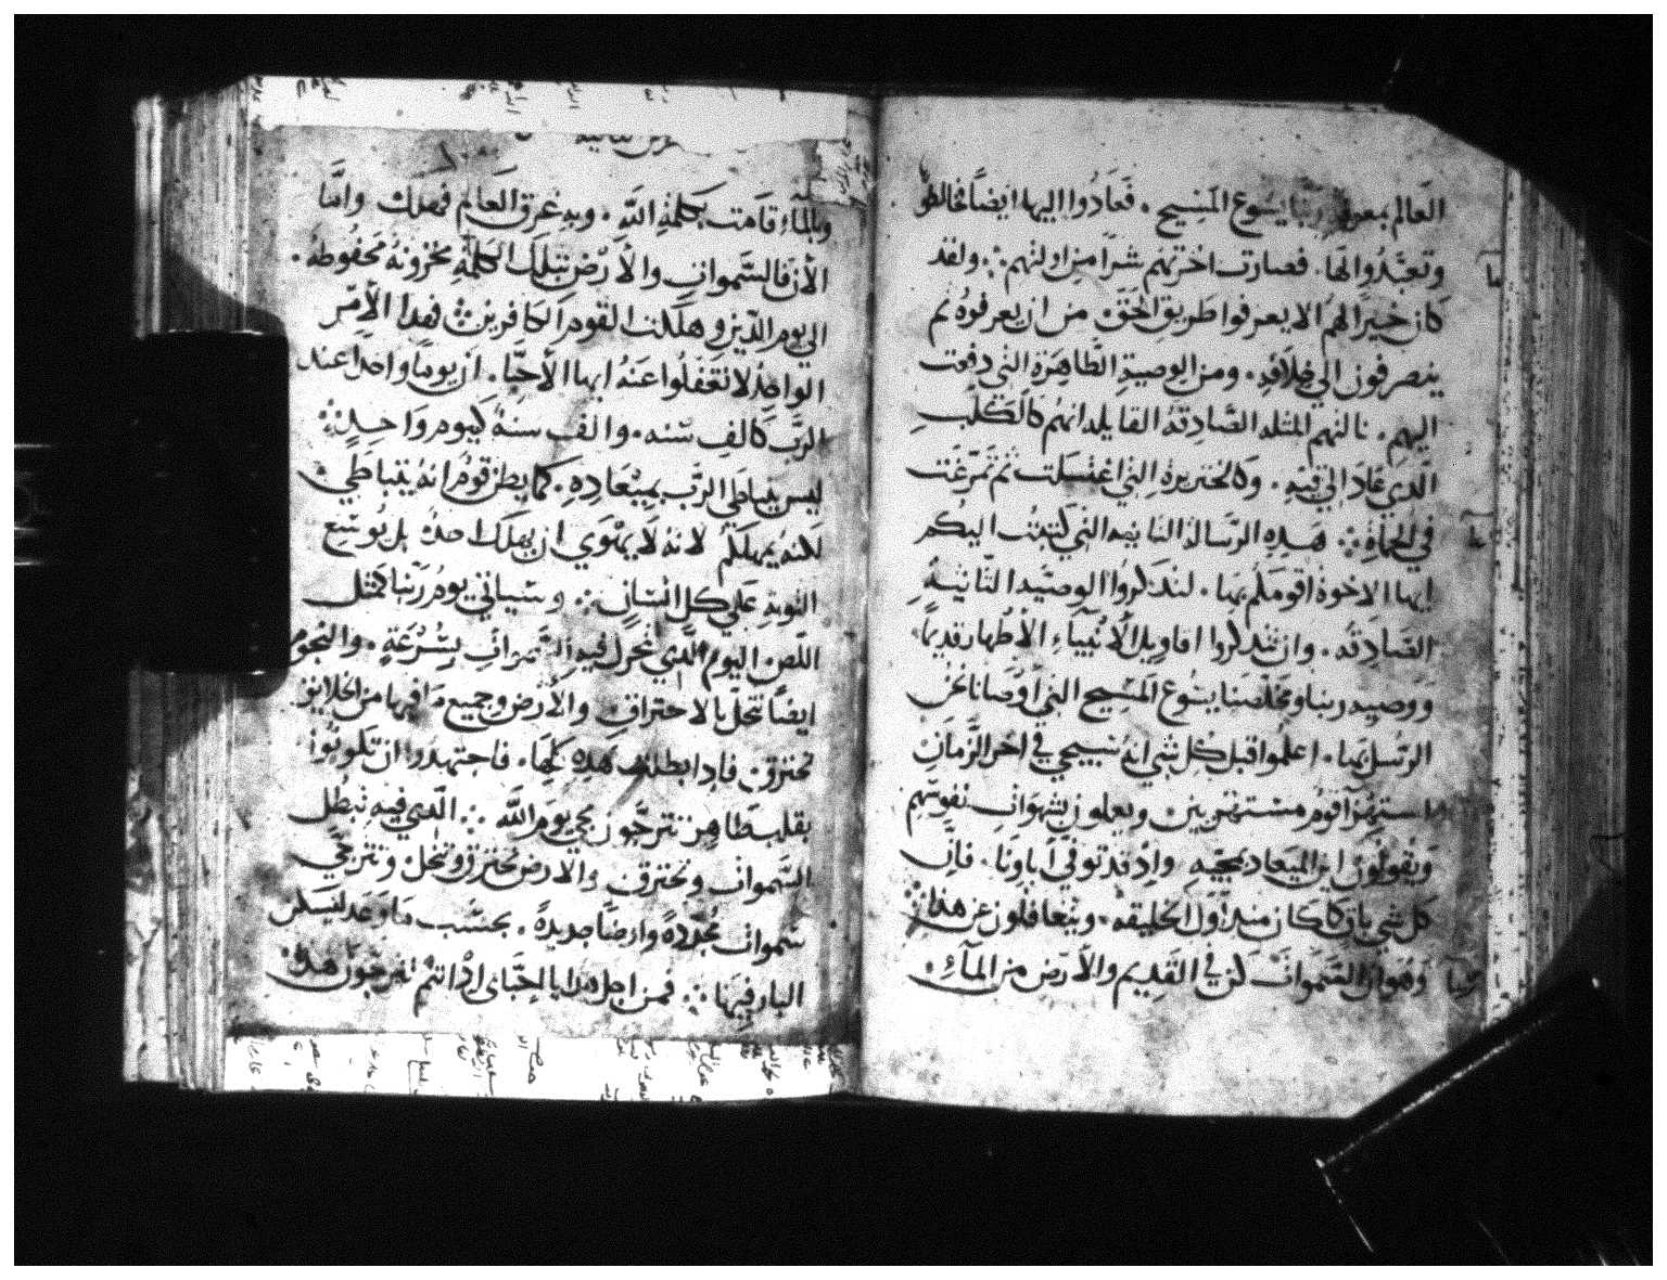 العالم بمعرفة ربنا يسوع المسيح . فعادوا اليها ايضاً فخالطو
وتعبّدوا لها . فصارت اخرتهم شراً من اولتهم ∴ ولقد
كان خيراً لهم الا يعرفوا طريق الحق . من ان يعرفوه ثم
ينصرفون الي خلافه . ومن الوصية الطاهرة التي دفعت
اليهم . نالتهم المثله الصادقه القايله انهم كالكلب
الذي عاد الي قيه . وكالخنزيرة التي اغتسلت ثم تمرغت
في الحماة ∴ هده الرساله الثانيه التي كتبت اليكم
ايها الاخوة اقومكم بها . لتدكروا الوصيه الثانيه
الصادقه . وان تتدكروا اقاويل الأنبياء الأطهار قديماً
ووصيه ربنا ومخلصنا يسوع المسيح التي أوصانا نحن
الرسل بها . اعلموا قبل كل شي انه سيجي في اخر الزمان
استهزآ قوم مستهزيين ويعملون بشهوات نفوسهم
ويقولون اين الميعاد بمجيه وإد قد توفي اباونا . فان
كل شي باق كما كان مند أول الخليقه . ويتغافلون عن هذا
وهو ان السموات كن في القديم والأرض من المآء .
وبالماء قامت بكلمة الله . وبه غرق العالم فهلك وامّا
الأن فالسموات والأرض بتلك الكلمة مخزونة محفوظة .
الي يوم الدين وهلكت القوم الكافرين ∴ فهدا الأمر
الواحد لا تغفلوا عنه ايها الأحبّا . ان يوماً واحداً عند
الرب كالف سنه . والف سنة كيوم واحد ∴
ليس يتباطي الرب بميعاده . كما يظن قوم انه يتباطي
لكنه يمهلكم لانه لا يهوي ان يهلك احد بل يوسع
التوبة علي كل انسان ∴ وسياتي يوم ربنا كمثل
اللص . اليوم الدي تحرك فيه السموات بسرعة . والنجوم
ايضاً تنحل بالاحتراق والأرض وجميع ما فيها من الخلايق
تحترق . فادا بطلت هده كلها . فاجتهدوا ان تكونوا
بقلب طاهر تترجّون مجي يوم الله ∴ الدي فيه تبطل
السموات وتحترق . والارض تحترق وتنحل ونترجي
سموات مجددة وارضاً جديدة . بحسب ما وعد ليسكن
البار فيها ∴ فمن اجل هدا يا احبّاي اد انتم تترجون هدا